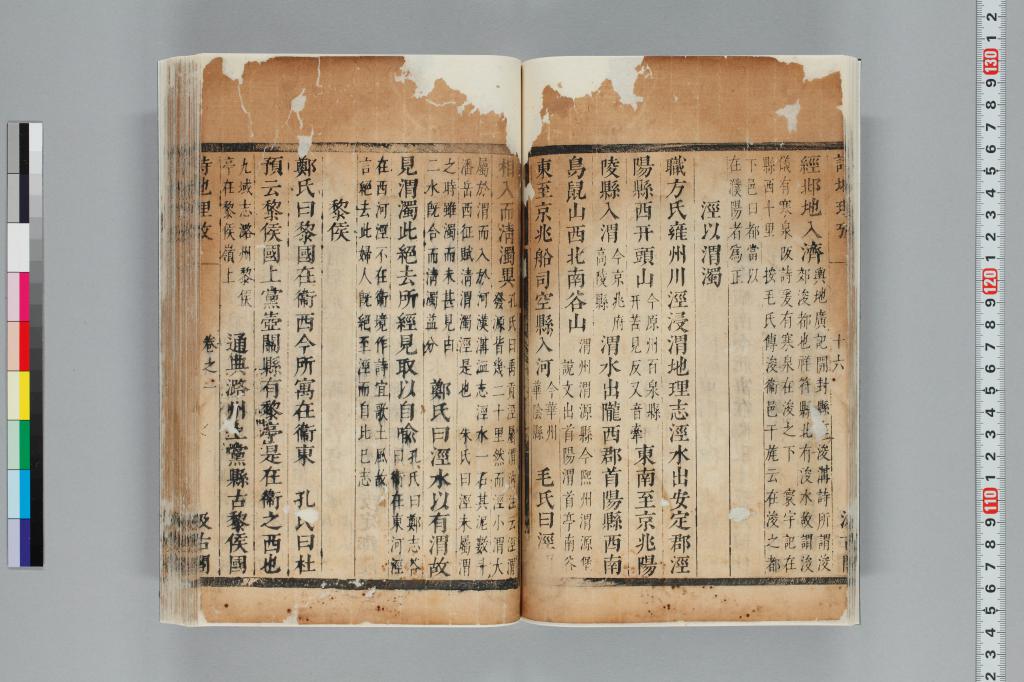 詩地理攷
十六
經邶地入濟
輿地廣記開封縣有浚溝詩所謂浚
郊浚都也祥符縣北有浚水故謂浚
儀有寒泉陂詩爰有寒泉在浚之下 寰宇記在
縣西十里 按毛氏傳浚衞邑干旄云在浚之都
下邑曰都當以
在濮陽者為正
涇以渭濁
職方氏雍州川涇浸渭地理志涇水出安定郡涇
陽縣西幵頭山
今原州百泉縣
幵苦見反又音牽
東南至京兆陽
陵縣入渭
今京兆府
高陵縣
渭水出隴西郡首陽縣西南
鳥鼠山西北南谷山
渭州渭源縣今熙州渭源堡
說文出首陽渭首亭南谷
東至京兆船司空縣入河
今華州
華陰縣
毛氏曰涇
相入而清濁異
孔氏曰禹貢涇屬渭汭注云涇渭
發源皆幾二十里然而涇小渭大
屬於渭而入於河漢溝洫志涇水一石其泥數斗
潘岳西征賦清渭濁涇是也 朱氏曰涇未屬渭
之時雖濁而未甚見由
二水旣合而清濁益分
鄭氏曰涇水以有渭故
見渭濁此絕去所經見取以自喻
孔氏曰鄭志答
曰衞在東河涇
在西河涇不在衞境作詩宜歌土風故
言絕去此婦人旣絕至涇而自比己志
黎侯
鄭氏曰黎國在衞西今所寓在衞東 孔氏曰杜
預云黎侯國上黨壺關縣有黎亭是在衞之西也
九域志潞州黎侯
亭在黎侯嶺上
通典潞州上黨縣古黎侯國
詩地理攷
卷之二
汲古閣